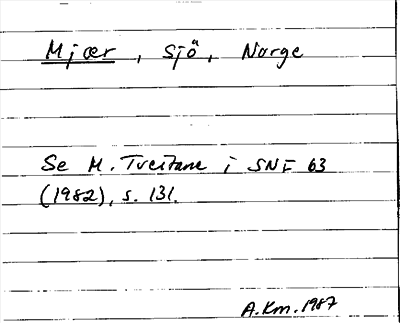 Mjær, sjö, Norge
Se M. Tveitane i SNF 63
(1982), s. 131.
A.Km. 1987